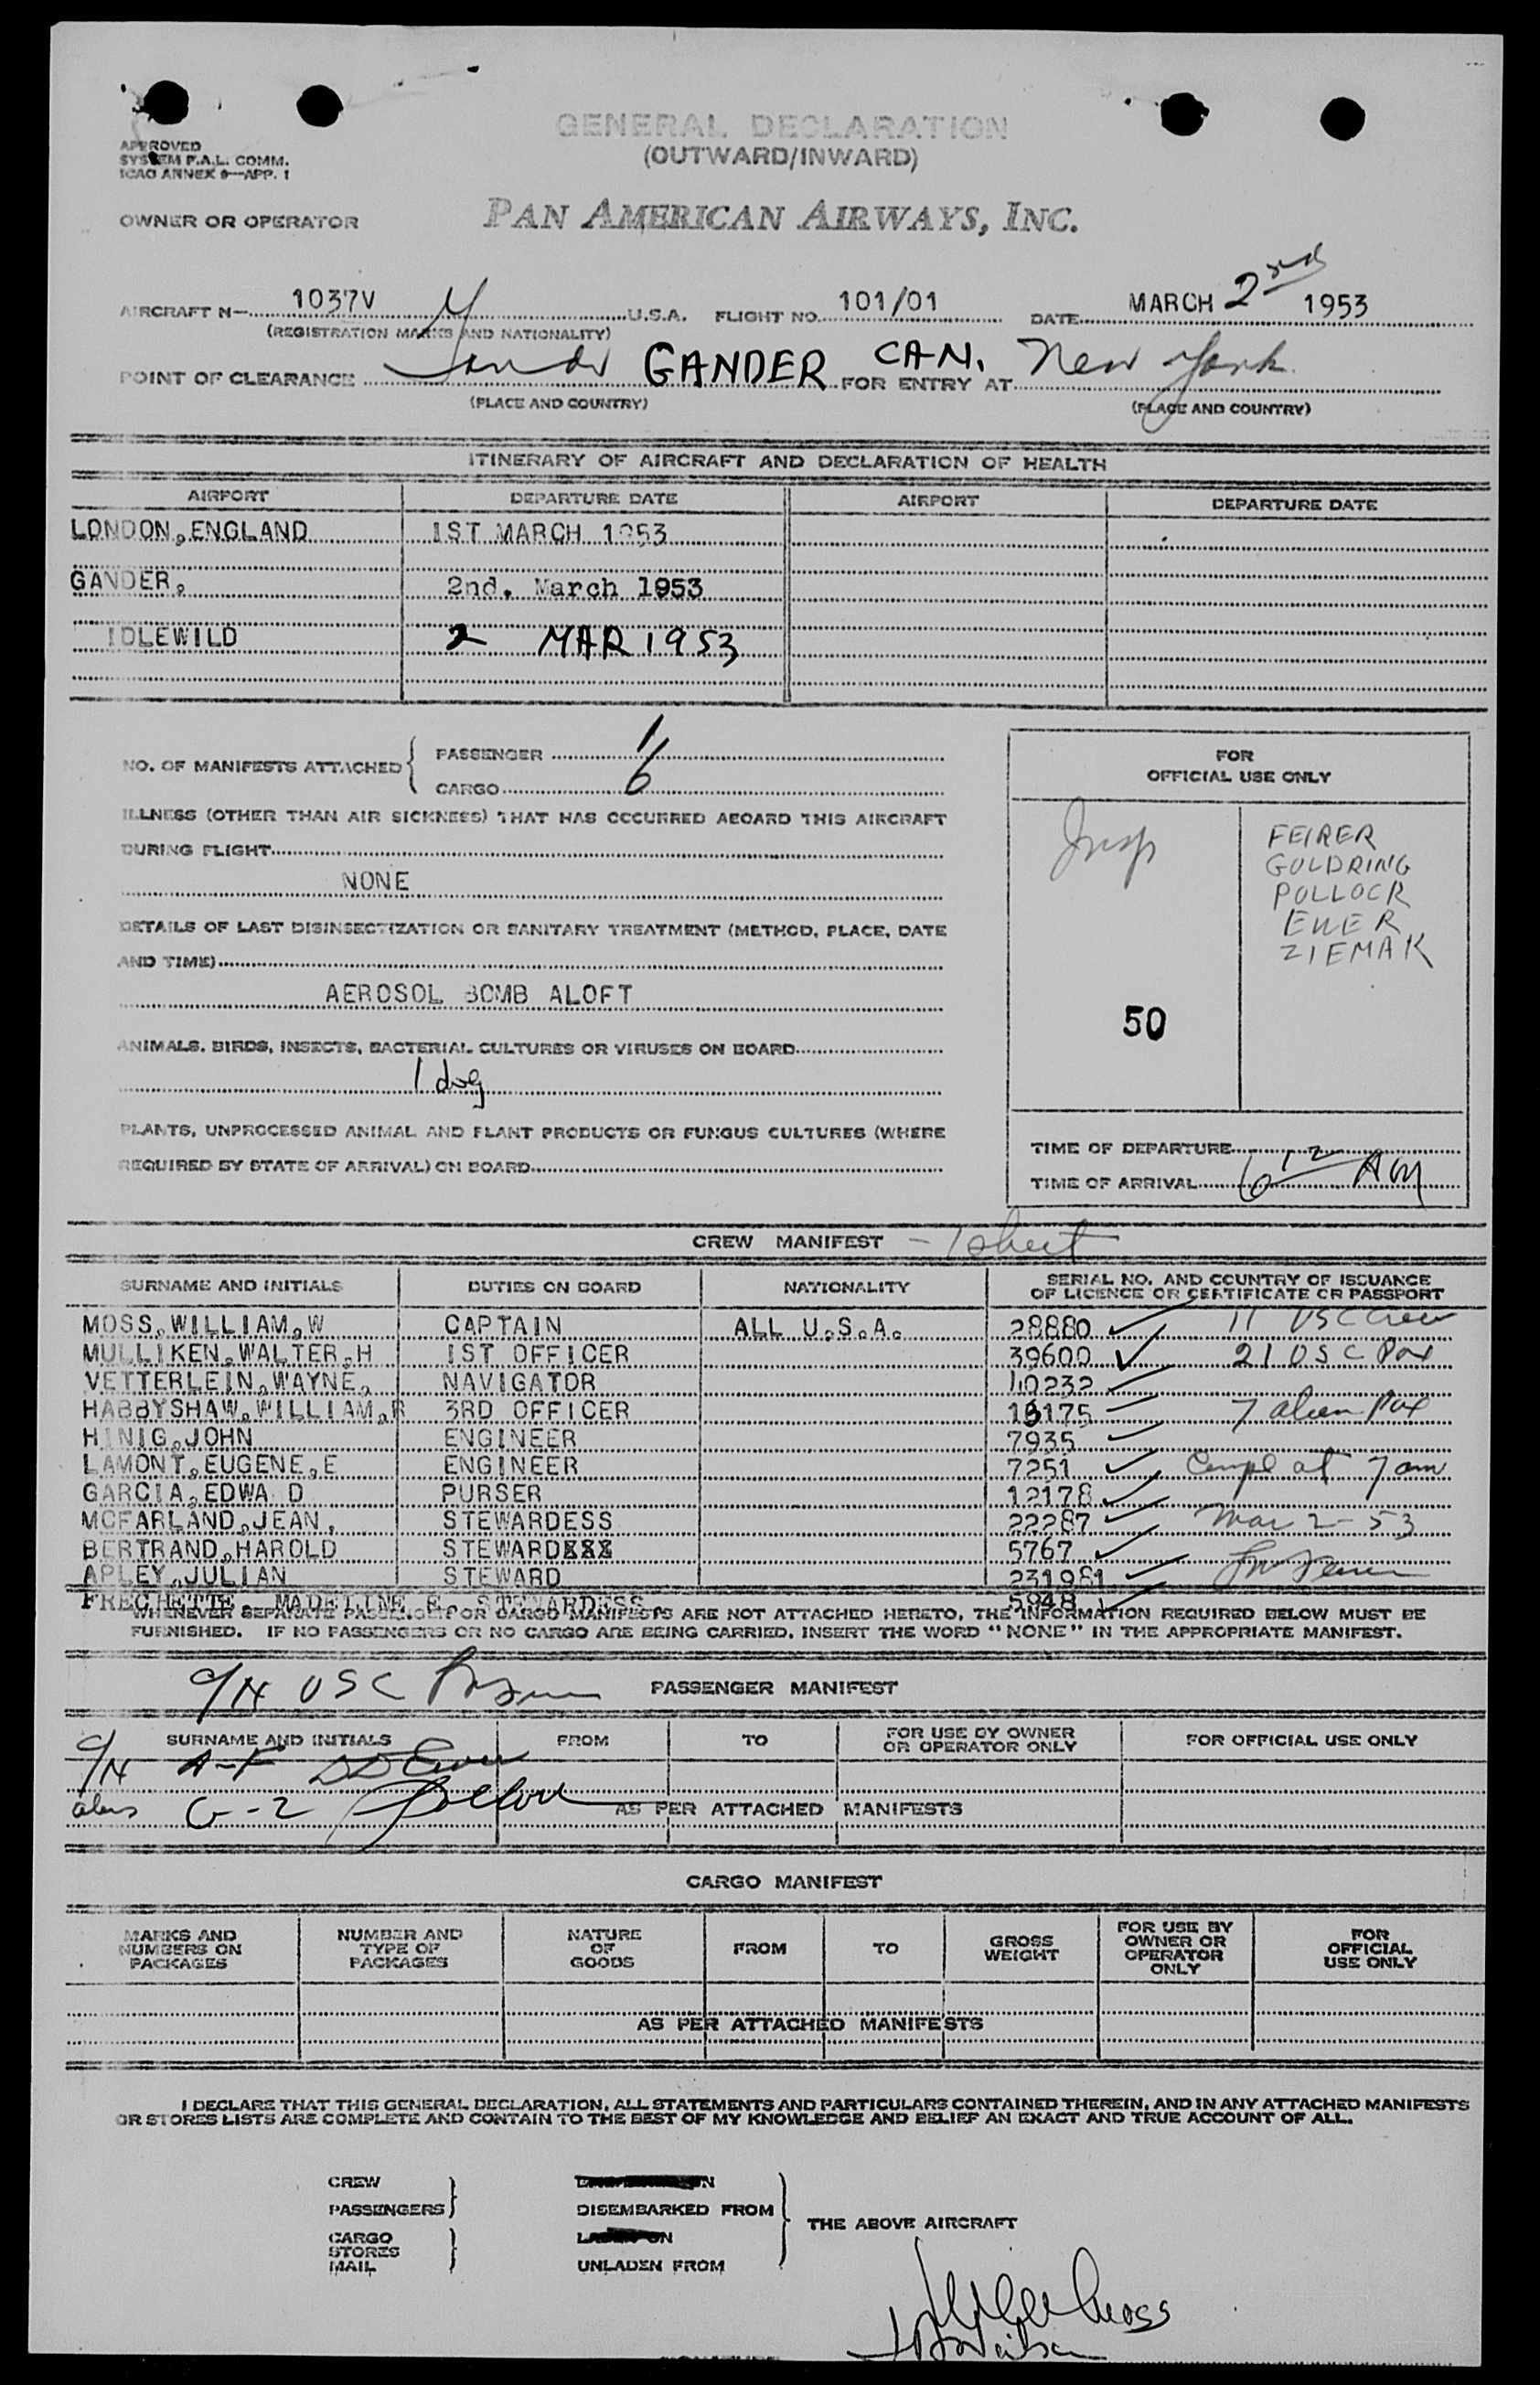 GENERAL DECLARATION
(OUTWARD/INWARD)
APPROVED
SYSTEM F.A.L. COMM.
ICAO ANNEX 9—APP. 1
OWNER OR OPERATOR PAN AMERICAN AIRWAYS, INC.
AIRCRAFT N— 1037V U.S.A. FLIGHT NO. 101/01 DATE MARCH 2nd 1953
(REGISTRATION MARKS AND NATIONALITY)
POINT OF CLEARANCE GANDER CAN. FOR ENTRY AT New York
(PLACE AND COUNTRY) (PLACE AND COUNTRY)
ITINERARY OF AIRCRAFT AND DECLARATION OF HEALTH
AIRPORT DEPARTURE DATE AIRPORT DEPARTURE DATE
LONDON, ENGLAND 1ST MARCH 1953
GANDER, 2nd. March 1953
IDLEWILD 2 MAR 1953
NO. OF MANIFESTS ATTACHED { PASSENGER 1
CARGO 6
ILLNESS (OTHER THAN AIR SICKNESS) THAT HAS OCCURRED ABOARD THIS AIRCRAFT
DURING FLIGHT
NONE
DETAILS OF LAST DISINSECTIZATION OR SANITARY TREATMENT (METHOD, PLACE, DATE
AND TIME)
AEROSOL BOMB ALOFT
ANIMALS, BIRDS, INSECTS, BACTERIAL CULTURES OR VIRUSES ON BOARD
1 dog
PLANTS, UNPROCESSED ANIMAL AND PLANT PRODUCTS OR FUNGUS CULTURES (WHERE
REQUIRED BY STATE OF ARRIVAL) ON BOARD
FOR
OFFICIAL USE ONLY
Insp
FEIRER
GOLDRING
POLLOCK
EWER
ZIEMAK
50
TIME OF DEPARTURE
TIME OF ARRIVAL 6 12 AM
CREW MANIFEST – 1 sheet
SURNAME AND INITIALS DUTIES ON BOARD NATIONALITY SERIAL NO. AND COUNTRY OF ISSUANCE
OF LICENCE OR CERTIFICATE OR PASSPORT
MOSS, WILLIAM, W CAPTAIN ALL U.S.A. 28880 11 USC Crew
MULLIKEN, WALTER, H 1ST OFFICER 39600 21 USC Pax
VETTERLEIN, WAYNE, NAVIGATOR 10232
HABBYSHAW, WILLIAM, R 3RD OFFICER 18175 7 alien Pax
HINIG, JOHN ENGINEER 7935
LAMONT, EUGENE, E ENGINEER 7251 Compl at 7 am
GARCIA, EDWA D PURSER 12178
MCFARLAND, JEAN, STEWARDESS 22287 Mar 2-53
BERTRAND, HAROLD STEWARDXXX 5767
APLEY, JULIAN STEWARD 231981
FRECHETTE, MADELINE E. STEWARDESS. 5948
WHENEVER SEPARATE PASSENGER OR CARGO MANIFESTS ARE NOT ATTACHED HERETO, THE INFORMATION REQUIRED BELOW MUST BE
FURNISHED. IF NO PASSENGERS OR NO CARGO ARE BEING CARRIED, INSERT THE WORD "NONE" IN THE APPROPRIATE MANIFEST.
USC PASSENGER MANIFEST
SURNAME AND INITIALS FROM TO FOR USE BY OWNER
OR OPERATOR ONLY FOR OFFICIAL USE ONLY
A-F
G-Z
AS PER ATTACHED MANIFESTS
CARGO MANIFEST
MARKS AND
NUMBERS ON
PACKAGES
NUMBER AND
TYPE OF
PACKAGES
NATURE
OF
GOODS
FROM
TO
GROSS
WEIGHT
FOR USE BY
OWNER OR
OPERATOR
ONLY
FOR
OFFICIAL
USE ONLY
AS PER ATTACHED MANIFESTS
I DECLARE THAT THIS GENERAL DECLARATION, ALL STATEMENTS AND PARTICULARS CONTAINED THEREIN, AND IN ANY ATTACHED MANIFESTS
OR STORES LISTS ARE COMPLETE AND CONTAIN TO THE BEST OF MY KNOWLEDGE AND BELIEF AN EXACT AND TRUE ACCOUNT OF ALL.
CREW
PASSENGERS
DISEMBARKED FROM
THE ABOVE AIRCRAFT
CARGO
STORES
MAIL
UNLADEN FROM